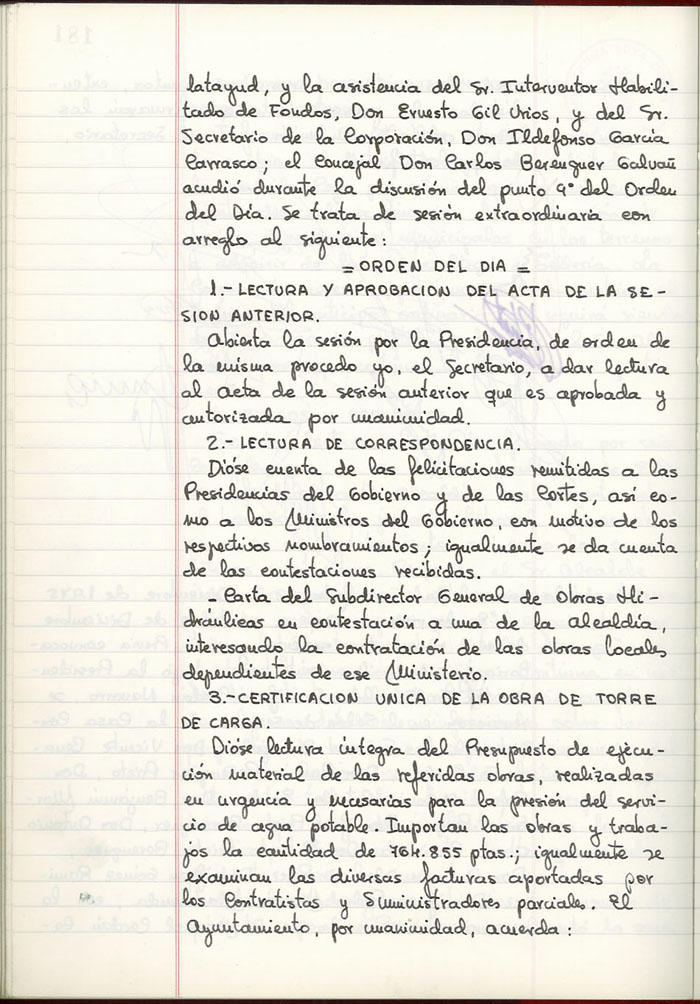 latayud, y la asistencia del Sr. Interventor Habili-
tado de Fondos, Don Ernesto Gil Urios, y del Sr.
Secretario de la Corporación, Don Ildefonso García
Carrasco; el Concejal Don Carlos Berenguer Galvañ
acudió durante la discusión del punto 9º del Orden
del Día. Se trata de sesión extraordinaria con
arreglo al siguiente:
= ORDEN DEL DIA =
1.- LECTURA Y APROBACION DEL ACTA DE LA SE-
SION ANTERIOR.
Abierta la sesión por la Presidencia, de orden de
la misma procedo yo, el Secretario, a dar lectura
al acta de la sesión anterior que es aprobada y
autorizada por unanimidad.
2.- LECTURA DE CORRESPONDENCIA.
Dióse cuenta de las felicitaciones remitidas a las
Presidencias del Gobierno y de las Cortes, así co-
mo a los Ministros del Gobierno, con motivo de los
respectivos nombramientos; igualmente se da cuenta
de las contestaciones recibidas.
- Carta del Subdirector General de Obras Hi-
dráulicas en contestación a una de la Alcaldía,
interesando la contratación de las obras locales
dependientes de ese Ministerio.
3.- CERTIFICACION UNICA DE LA OBRA DE TORRE
DE CARGA.
Dióse lectura íntegra del Presupuesto de ejecu-
ción material de las referidas obras, realizadas
en urgencia y necesarias para la presión del servi-
cio de agua potable. Importan las obras y traba-
jos la cantidad de 764.855 ptas.; igualmente se
examinan las diversas facturas aportadas por
los Contratistas y Suministradores parciales. El
Ayuntamiento, por unanimidad, acuerda: